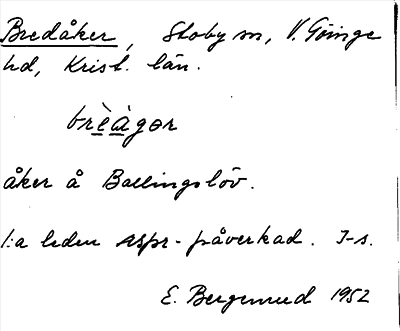 Bredåker, Stoby sn, V. Göinge
hd, Krist. län.
brèàgər
åker å Ballingslöv.
1:a leden aspr-påverkad. J-s.
E. Bergemud 1952